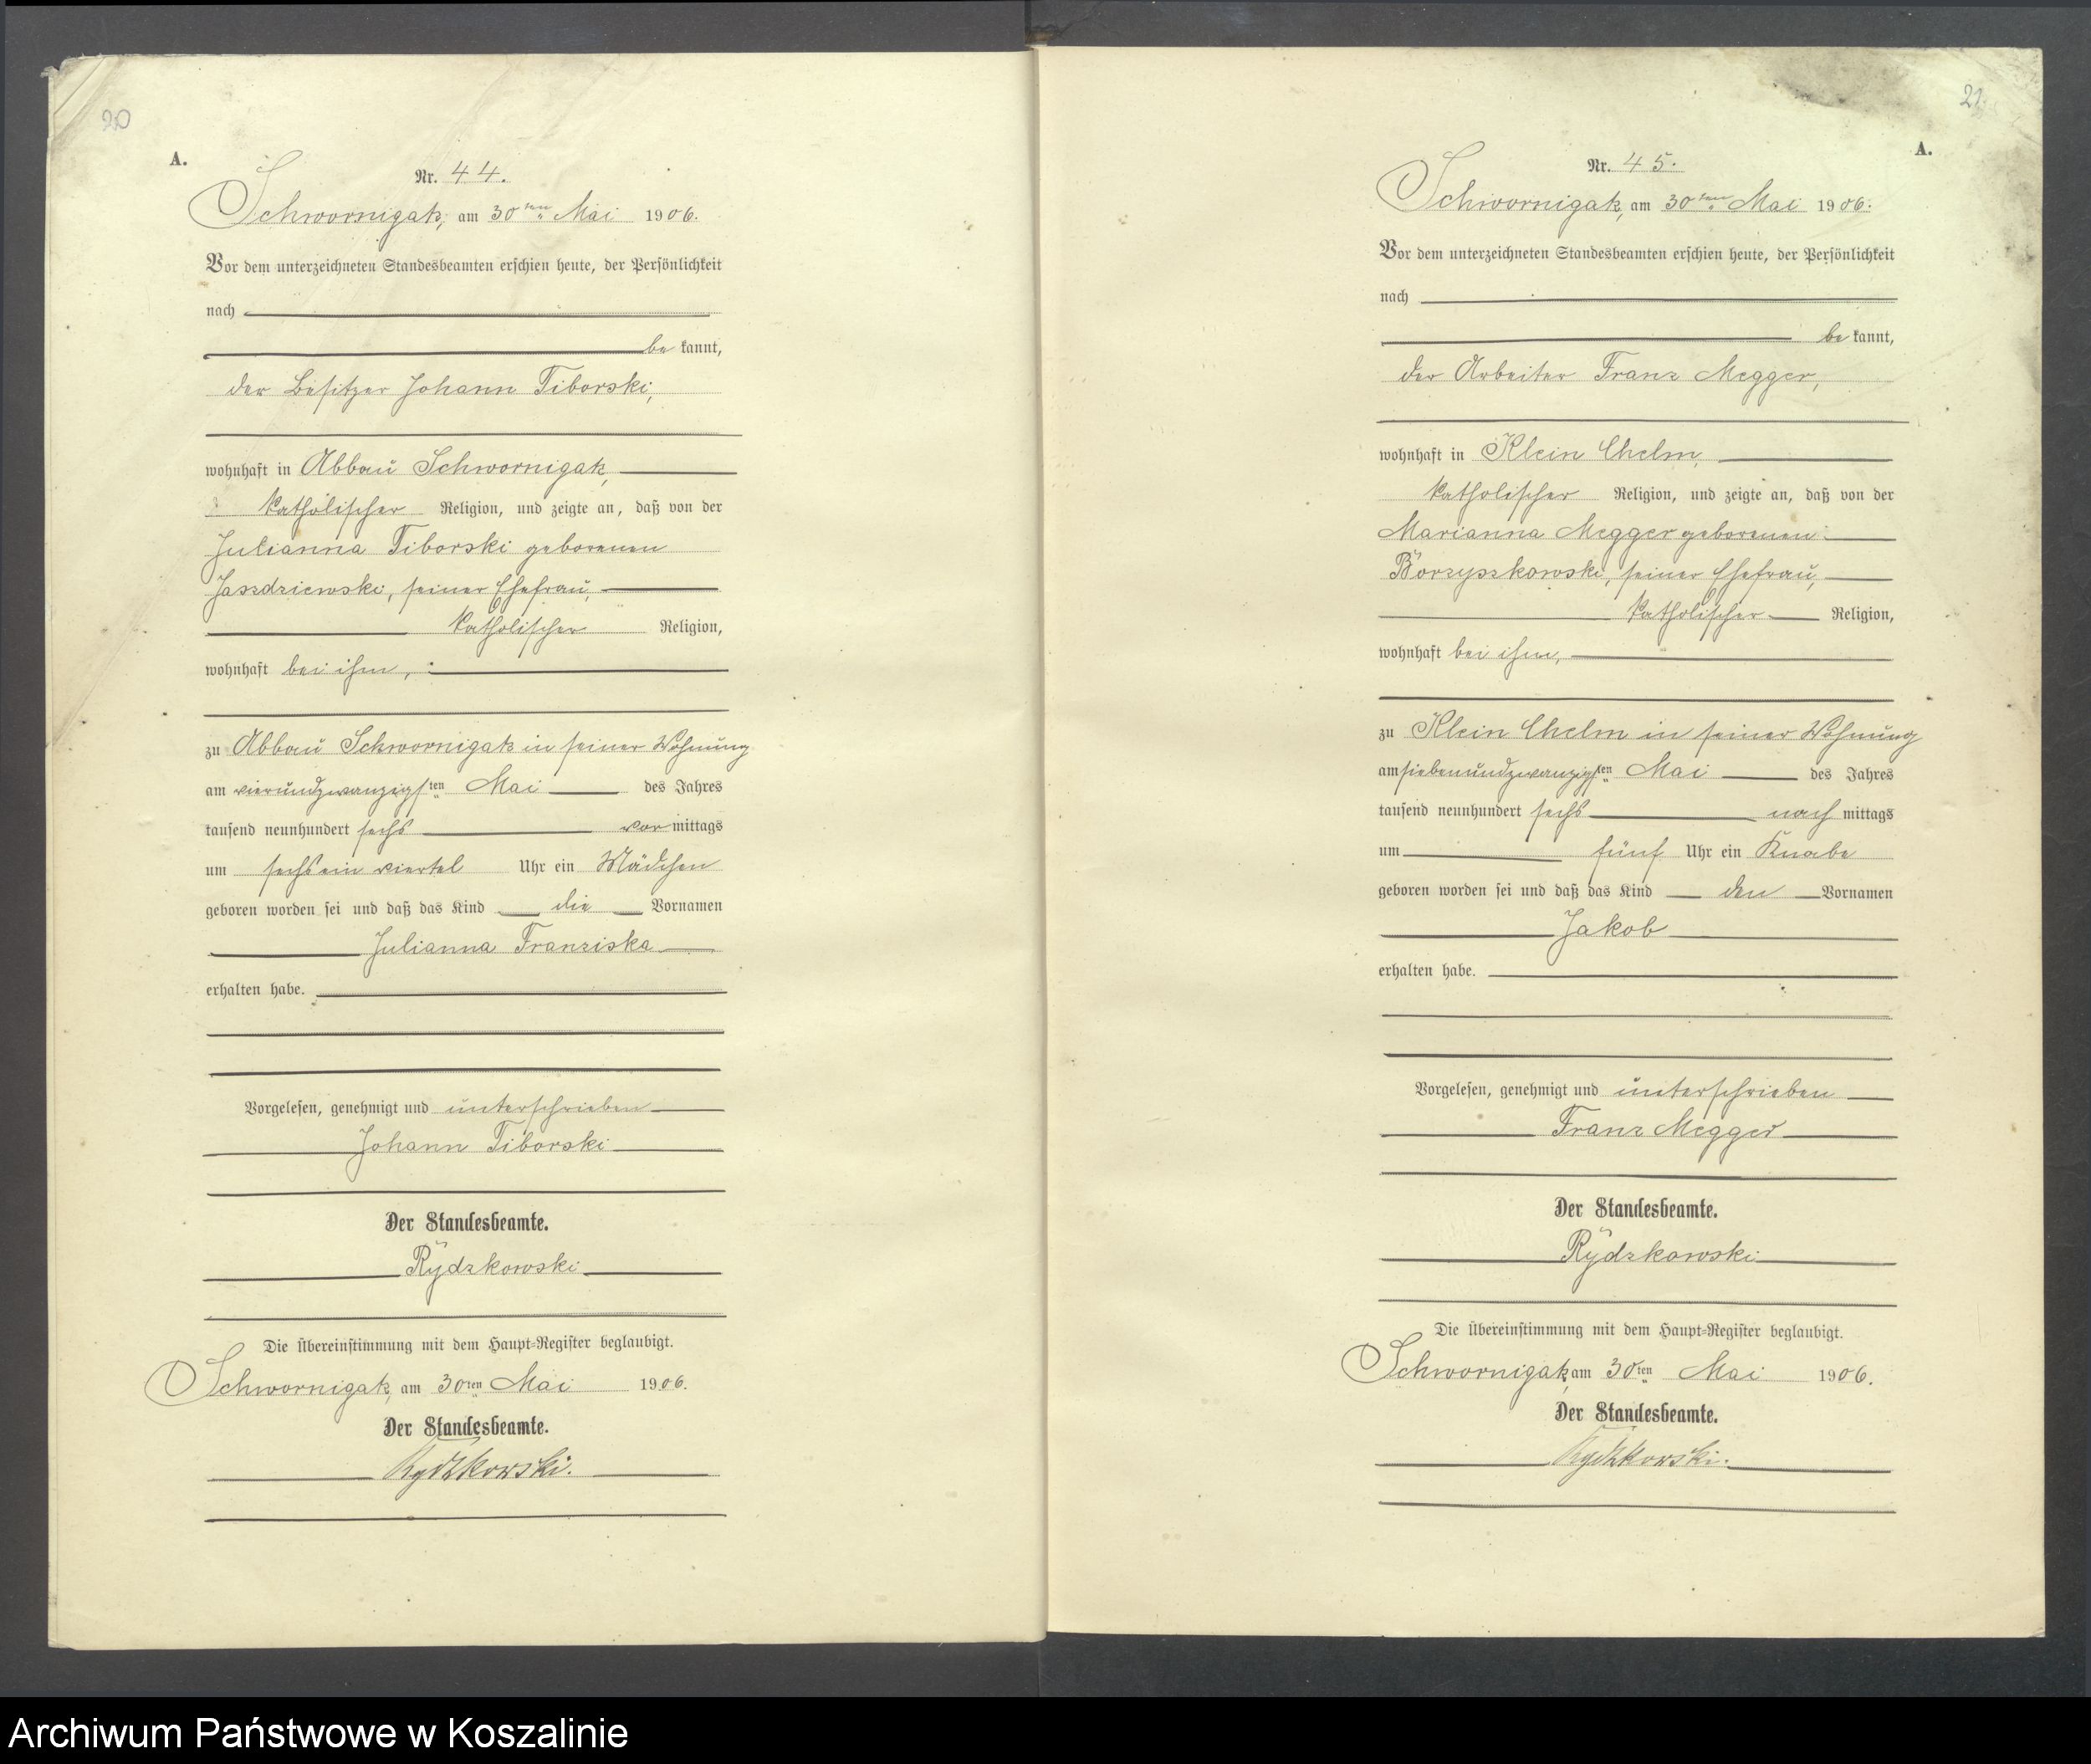 20
A.
Nr. 44.
Schwornigatz, am 30ten Mai 1906.
Vor dem unterzeichneten Standesbeamten erschien heute, der Persönlichkeit
nach
be kannt,
der Besitzer Johann Tiborski,
wohnhaft in Abbau Schwornigatz,
katholischer Religion, und zeigte an, daß von der
Julianna Tiborski geborenen
Jaszdziewski, seiner Ehefrau,
katholischer Religion,
wohnhaft bei ihm,
zu Abbau Schwornigatz in seiner Wohnung
am vierundzwanzigsten Mai des Jahres
tausend neunhundert sechs vor mittags
um sechs ein viertel Uhr ein Mädchen
geboren worden sei und daß das Kind die Vornamen
Julianna Franziska
erhalten habe.
Vorgelesen, genehmigt und unterschrieben
Johann Tiborski
Der Standesbeamte.
Rÿdzkowski
Die Übereinstimmung mit dem Haupt-Register beglaubigt.
Schwornigatz, am 30ten Mai 1906.
Der Standesbeamte.
Rydzkowski.
21
A.
Nr. 45.
Schwornigatz, am 30ten Mai 1906.
Vor dem unterzeichneten Standesbeamten erschien heute, der Persönlichkeit
nach
be kannt,
der Arbeiter Franz Megger,
wohnhaft in Klein Chelm,
katholischer Religion, und zeigte an, daß von der
Marianna Megger geborenen
Borzyszkowski, seiner Ehefrau,
katholischer Religion,
wohnhaft bei ihm,
zu Klein Chelm in seiner Wohnung
am siebenundzwanzigsten Mai des Jahres
tausend neunhundert sechs nach mittags
um fünf Uhr ein Knabe
geboren worden sei und daß das Kind den Vornamen
Jakob
erhalten habe.
Vorgelesen, genehmigt und unterschrieben
Franz Megger
Der Standesbeamte.
Rÿdzkowski
Die Übereinstimmung mit dem Haupt-Register beglaubigt.
Schwornigatz, am 30ten Mai 1906.
Der Standesbeamte.
Rydzkowski.
Archiwum Państwowe w Koszalinie